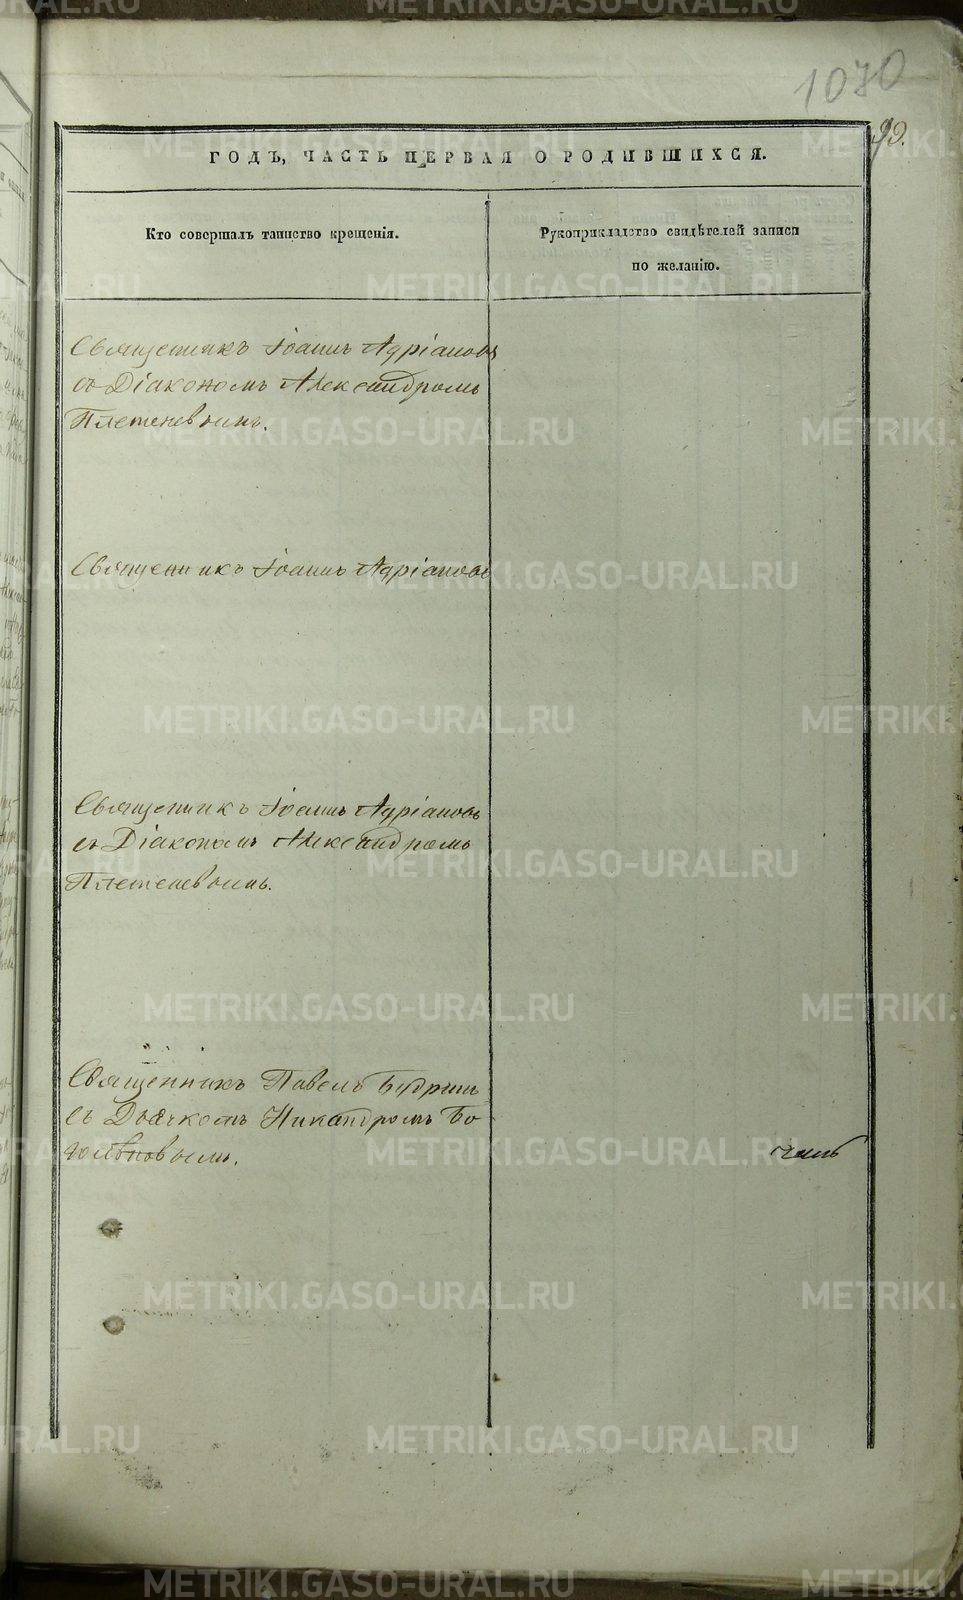 1070
90.
ГОДЪ, ЧАСТЬ ПЕРВАЯ О РОДИВШИХСЯ.
Кто совершалъ таинство крещенія.
Рукоприкладство свидѣтелей записи
по желанію.
Священникъ Іоаннъ Адріановъ
съ Діакономъ Александромъ
Плетеневымъ.
Священникъ Іоаннъ Адріановъ
Священникъ Іоаннъ Адріановъ
съ Діакономъ Александромъ
Плетеневымъ.
Священникъ Павелъ Будринъ
съ Дьячкомъ Никандромъ Бо
голѣповымъ.
METRIKI.GASO-URAL.RU